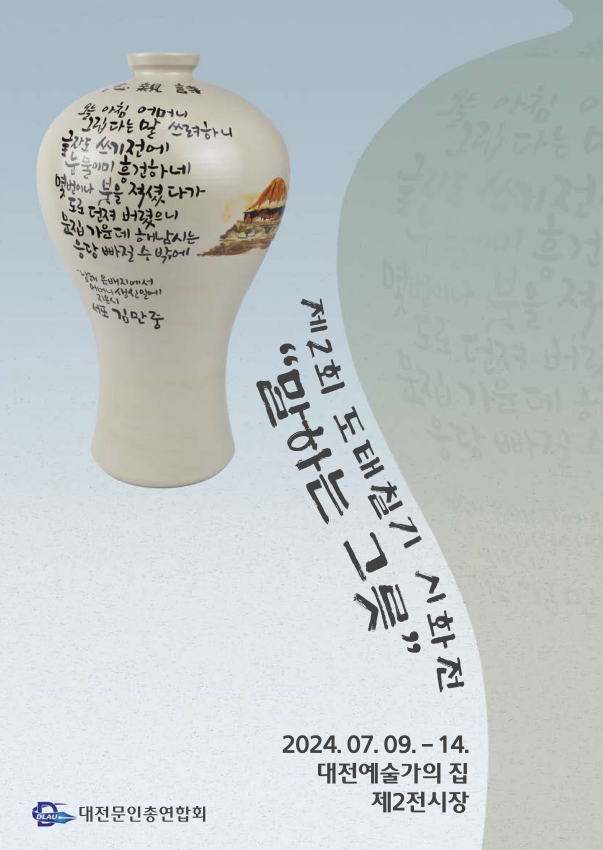 思親詩
오늘 아침 어머니
그립다는 말 쓰려하니
글자도 쓰기전에
눈물이미 흥건하네
몇번이나 붓을 적셨다가
도로 던져 버렸으니
문집 가운데 해남시는
응당 빠절 수 밖에
남해 유배지에서
어머니 생신일에
지은시
서포 김만중
제2회 도태칠기 시화전
“말하는 그릇”
2024. 07. 09. – 14.
대전예술가의 집
제2전시장
DLAU 대전문인총연합회